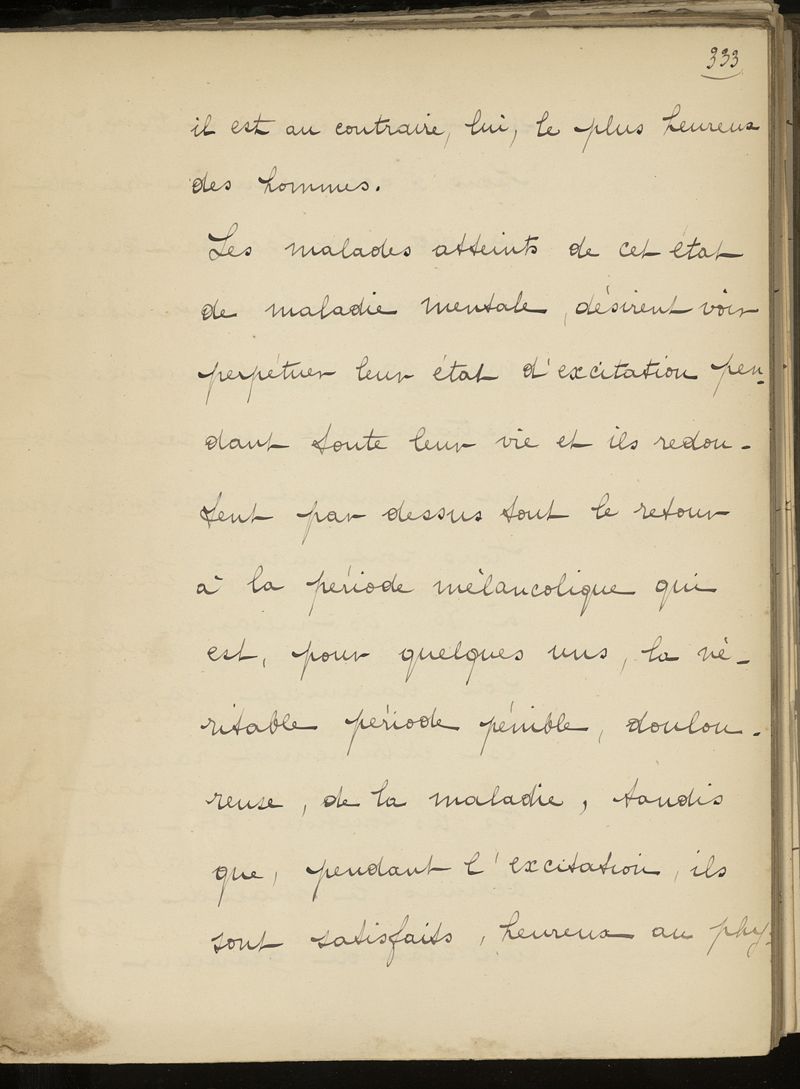 333
il est au contraire, lui, le plus heureux
des hommes.
Les malades atteints de cet état
de maladie mentale, désirent voir
perpétuer leur état d'excitation pen-
dant toute leur vie et ils redou-
tent par dessus tout le retour
à la période mélancolique qui
est, pour quelques uns, la vé-
ritable période pénible, doulou-
reuse, de la maladie, tandis
que, pendant l'excitation, ils
sont satisfaits, heureux au phy-